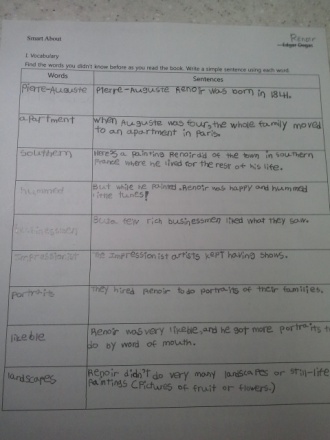 Smart About
Renoir
— Edgar Degas
I. Vocabulary
Find the words you didn't know before as you read the book. Write a simple sentence using each word.
Words Sentences
Pierre-Auguste Pierre-Auguste Renoir was born in 1841.
apartment when Auguste was four, the whole family moved
to an apartment in Paris.
southern Here's a painting Renoir did of the town in southern
France where he lived for the rest of his life.
hummed But while he painted, Renoir was happy and hummed
little tunes!
businessmen few rich businessmen liked what they saw.
impressionist The Impressionist artists kept having shows.
portraits They hired Renoir to do portraits of their families.
likeble Renoir was very likeble, and he got more portraits to
do by word of mouth.
landscapes Renoir didn't do very many landscapes or still-life
paintings (pictures of fruit or flowers.)